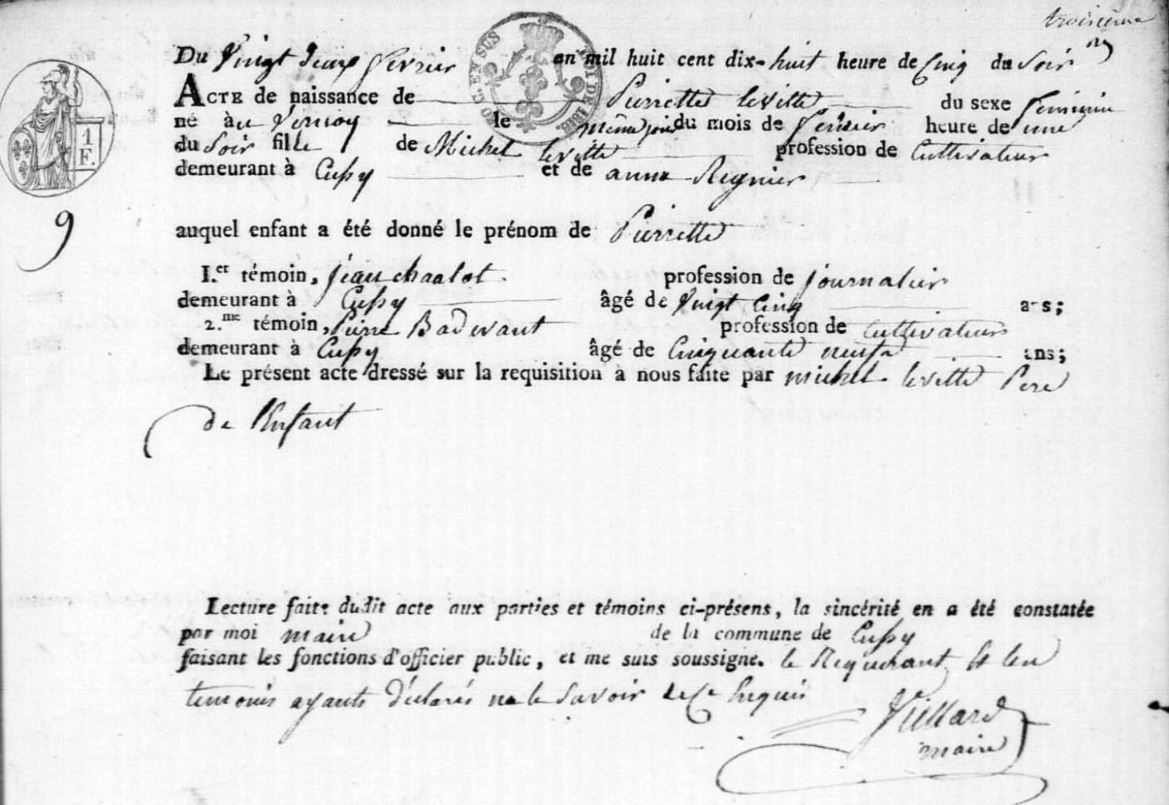 troisième
Du Vingt Deux fevrier an mil huit cent dix-huit heure de Cinq du Soir
ACTE de naissance de Pierrette levitte du sexe feminin
né à au Vernoy le même jour du mois de fevrier heure de une
du Soir fille de Michel levitte profession de Cultivateur
demeurant à Cussy et de anne Regnier
1 F.
9
auquel enfant a été donné le prénom de Pierrette
I.er témoin, jean chaalot profession de journalier
demeurant à Cussy âgé de Vingt Cinq ans;
2.me témoin, Pierre Baderant profession de Cultivateur
demeurant à Cussy âgé de Cinquante neuf ans;
Le présent acte dressé sur la requisition à nous faite par michel levitte Pere
de l'Enfant
Lecture faite dudit acte aux parties et témoins ci-présens, la sincérité en a été constatée
par moi maire de la commune de Cussy
faisant les fonctions d'officier public, et me suis soussigne. le Requerant Et les
temoins ayants déclarés ne le Savoir de Ce Enquis
Villard
maire